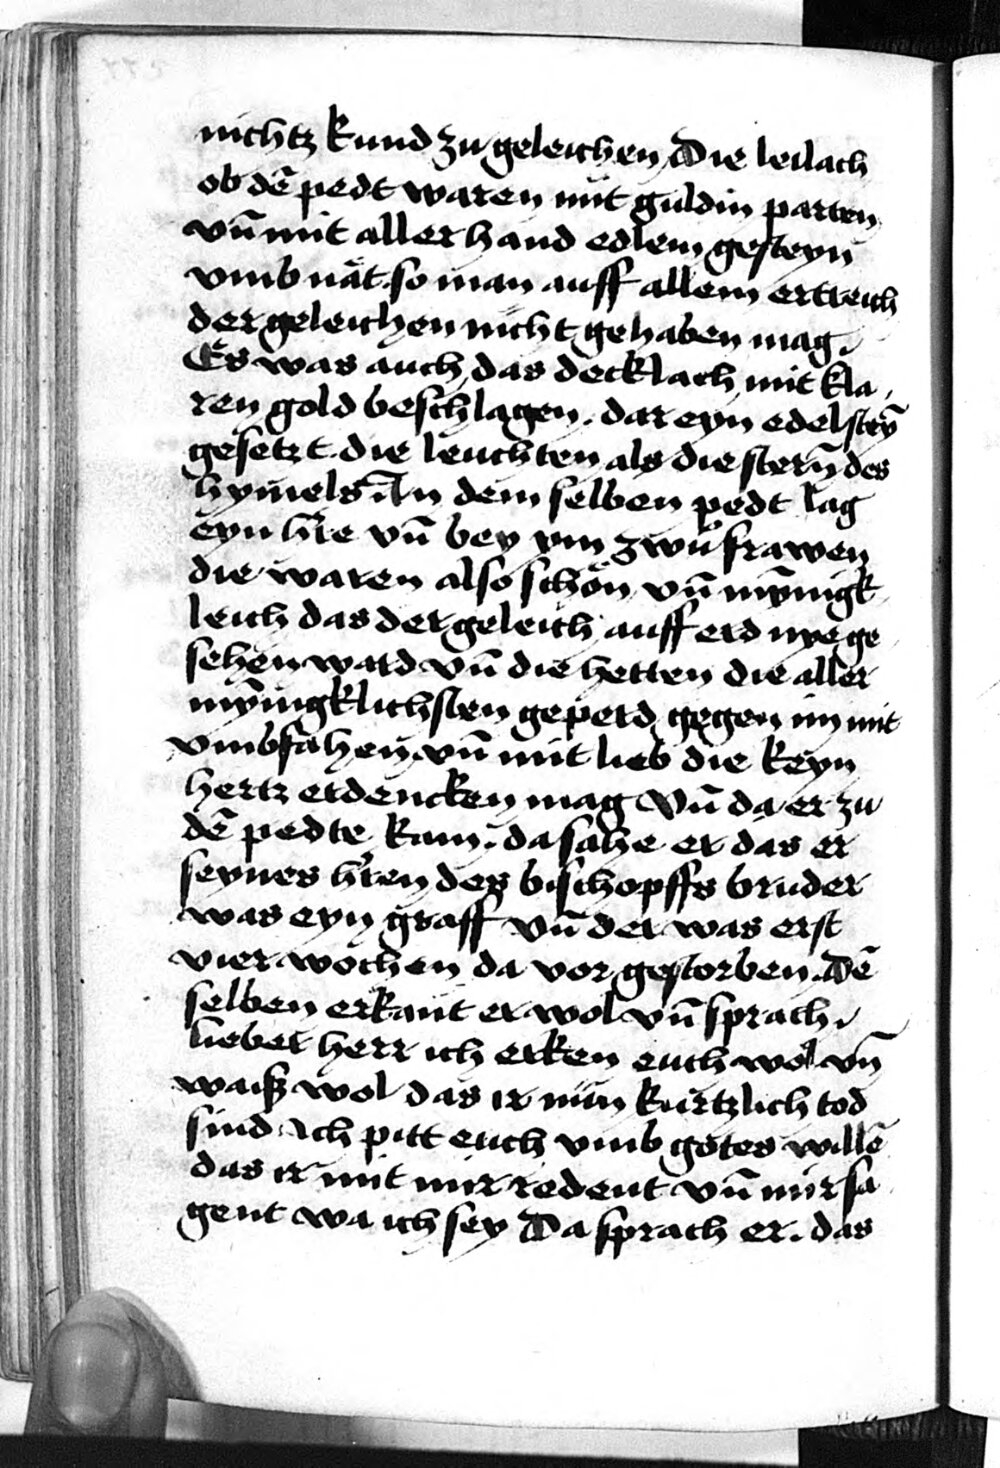 nichtz kund zu geleichen Die leilach
ob dē pedt waren mit guldin parten
vn̄ mit aller hand edlem gesteyn
vmb nät so man auff allem ertreich
der geleichen nicht gehaben mag.
Es was auch das decklach mit kla
ren gold beschlagen. dar eyn edel steȳ
gesetzt die leuchten als die stern̄ des
hym̄els In dem selben pedt lag
eyn hre vn̄ bey ym zwu frawen
die waren also schön vn̄ mȳnigk
leich das der geleich auff erd nye ge
sehen ward vn̄ die hetten die aller
mȳnigklichsten geperd gegen im mit
vmbfahen vn̄ mit lieb die keyn
hertz erdencken mag Vn̄ da er zu
dē pedte kam. da sahe er das er
seynes hren des bischopffs bruder
was eyn graff vn̄ der was erst
vier wochen da vor gestorben. Dē
selben erkant er wol vn̄ sprach.
lieber herr ich erken euch wol vn̄
waiß wol das ir nun kurtzlich tod
sind Ich pitt euch vmb gotes willē
das ir mit mir redent vn̄ mir sa
gent wa ich sey Da sprach er. das